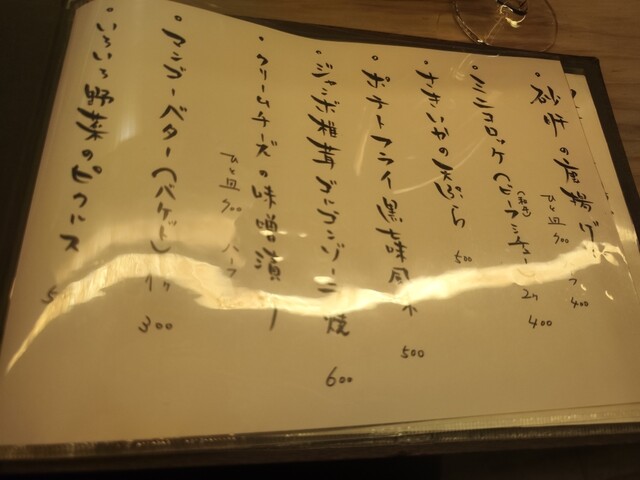 砂肝の唐揚げ
ひと皿
400
ミニコロッケ(ビーフシチュー)
2ケ
400
ナガイモの天ぷら
500
ポテトフライ黒七味風味
500
ジャンボ椎茸ゴルゴンゾーラ焼
600
クリームチーズの味噌漬
ひと皿
ハーフ
マンゴーバター(バゲット)
300
いろいろ野菜のピクルス